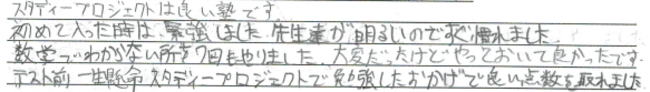 スタディープロジェクトは良い塾です。
初めて入った時は、緊強しました。先生達が明るいのですぐ慣れました。
数学でわからない所を7回もやりました。大変だったけどやっておいて良かったです。
テスト前一生懸命スタディープロジェクトで勉強したおかげで良い点数を取れました